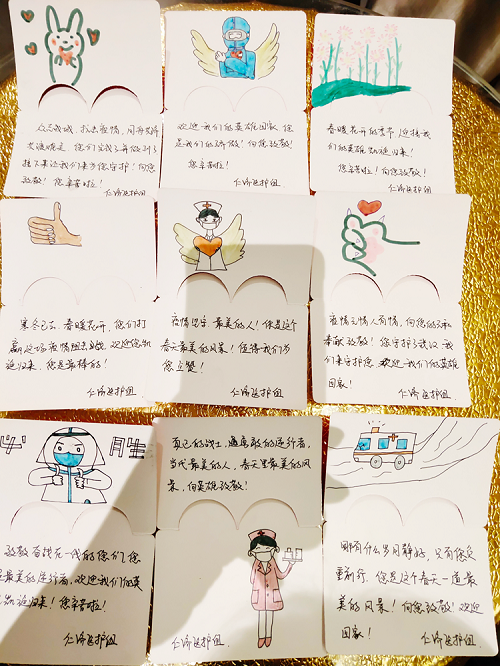 众志成城，抗击疫情，
欢迎我们的英雄回家，您
是我们的骄傲！向您致敬！
您辛苦啦！
仁济医护组
春暖花开的季节，迎接我
们的英雄凯旋归来！
您辛苦啦！向您致敬！
仁济医护组
接下来让我们来为您守护！向您
致敬！您辛苦啦！
仁济医护组
寒冬已去，春暖花开，您们打
赢这场疫情阻击战，欢迎您凯
旋归来，您是最棒的！
仁济医护组
疫情坚守，最美的人！您是这个
春天最美的风景！值得我们为
您点赞！
仁济医护组
疫情无情人有情，向您的无私
奉献致敬！您守护了武汉，我
们来守护您，欢迎我们的英雄
回家！
仁济医护组
致敬奋战在一线的您们，您
是最美的逆行者，欢迎我们的英
雄凯旋归来！您辛苦啦！
仁济医护组
真正的战士，逆风敢的逆行者，
当代最美的人，春天里最美的风
景，向英雄致敬！
仁济医护组
哪有什么岁月静好，只有您负
重前行，您是这个春天一道最
美的风景！向您致敬！欢迎
回家！
仁济医护组